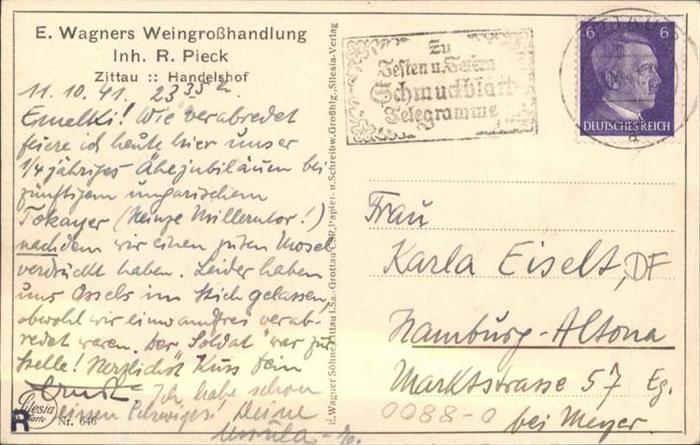 E. Wagners Weingroßhandlung
Inh. R. Pieck
Zittau :: Handelshof
11. 10. 41. 23 35 h.
Emelki! Wie verabredet
feiere ich heute hier unser
1/4 jähriges Ehejubiläum bei
zünftigem ungarischem
Tokayer (Heinze Millerntor!)
nachdem wir einen guten Mosel
verdrückt haben. Leider haben
uns Ossels im Stich gelassen,
obwohl wir einwandfrei verab-
redet waren. Der Soldat war zur
Stelle! Herzlichst Kuss Dein
Ernst. Ich habe schon
einen Deine
Ursula
Silesia
Karte
R
Nr. 646
E. Wagner Söhne, Zittau i. Sa.-Grottau CSR, Papier- u. Schreibw. Großhlg., Silesia-Verlag
Zu
Festen u. Feiern
Schmuckblatt
Telegramme
ZITTAU
a
6 6
DEUTSCHES REICH
Frau
Karla Eiselt, DF
Hamburg-Altona
Marktstrasse 57 Eg.
bei Meyer.
0088-0